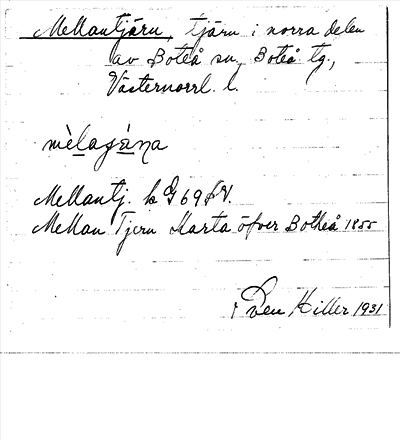 Mellantjärn, tjärn i norra delen
av Boteå sn, Boteå tg.,
Västernorrl. l.
mèlaʃä̀na
Mellantj. k G 69 f V.
Mellan Tjern Karta öfver Botheå 1855
Sven Hiller 1931